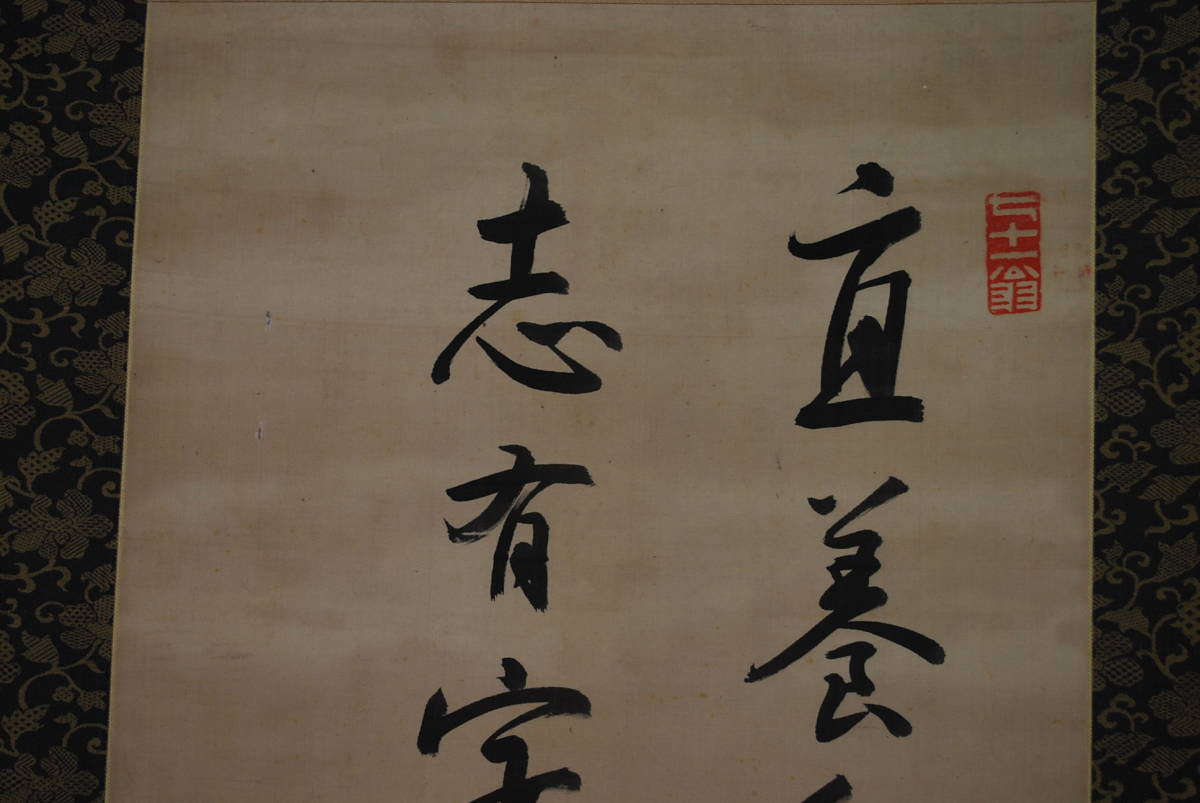 七十一翁
宜養
志有